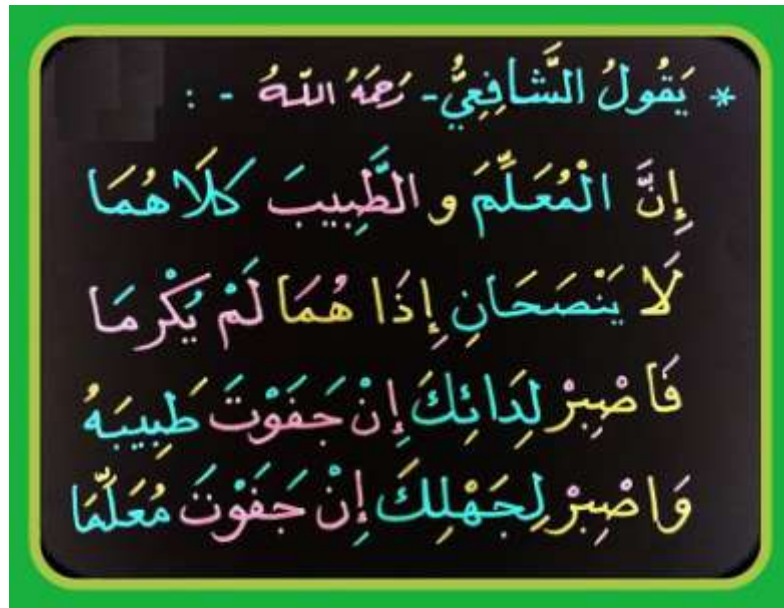 * يَقُولُ الشَّافِعِيُّ - رَحِمَهُ اللهُ - :
إِنَّ الْمُعَلِّمَ و الطَّبِيبَ كلَاهُمَا
لَا يَنْصَحَانِ إِذَا هُمَا لَمْ يُكْرمَا
فَاصْبِرْ لِدَائِكَ إِنْ جَفَوْتَ طَبِيبَهُ
وَاصْبِرْ لِجَهْلِكَ إِنْ جَفَوْتَ مُعَلِّمَا